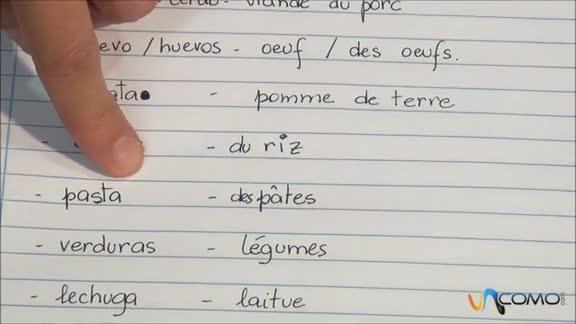 viande du porc
/ huevos - oeuf / des oeufs.
- pomme de terre
- - du riz
- pasta - des pâtes
- verduras - légumes
- lechuga - laitue
UNCOMO